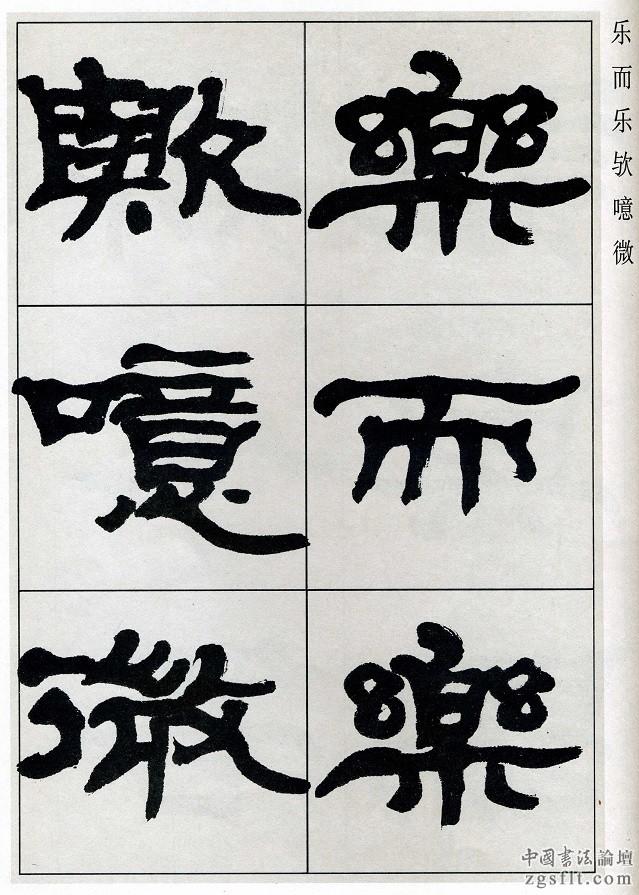 樂而樂
歟噫微
乐而乐欤噫微
中國書法論壇
zgsflt.com